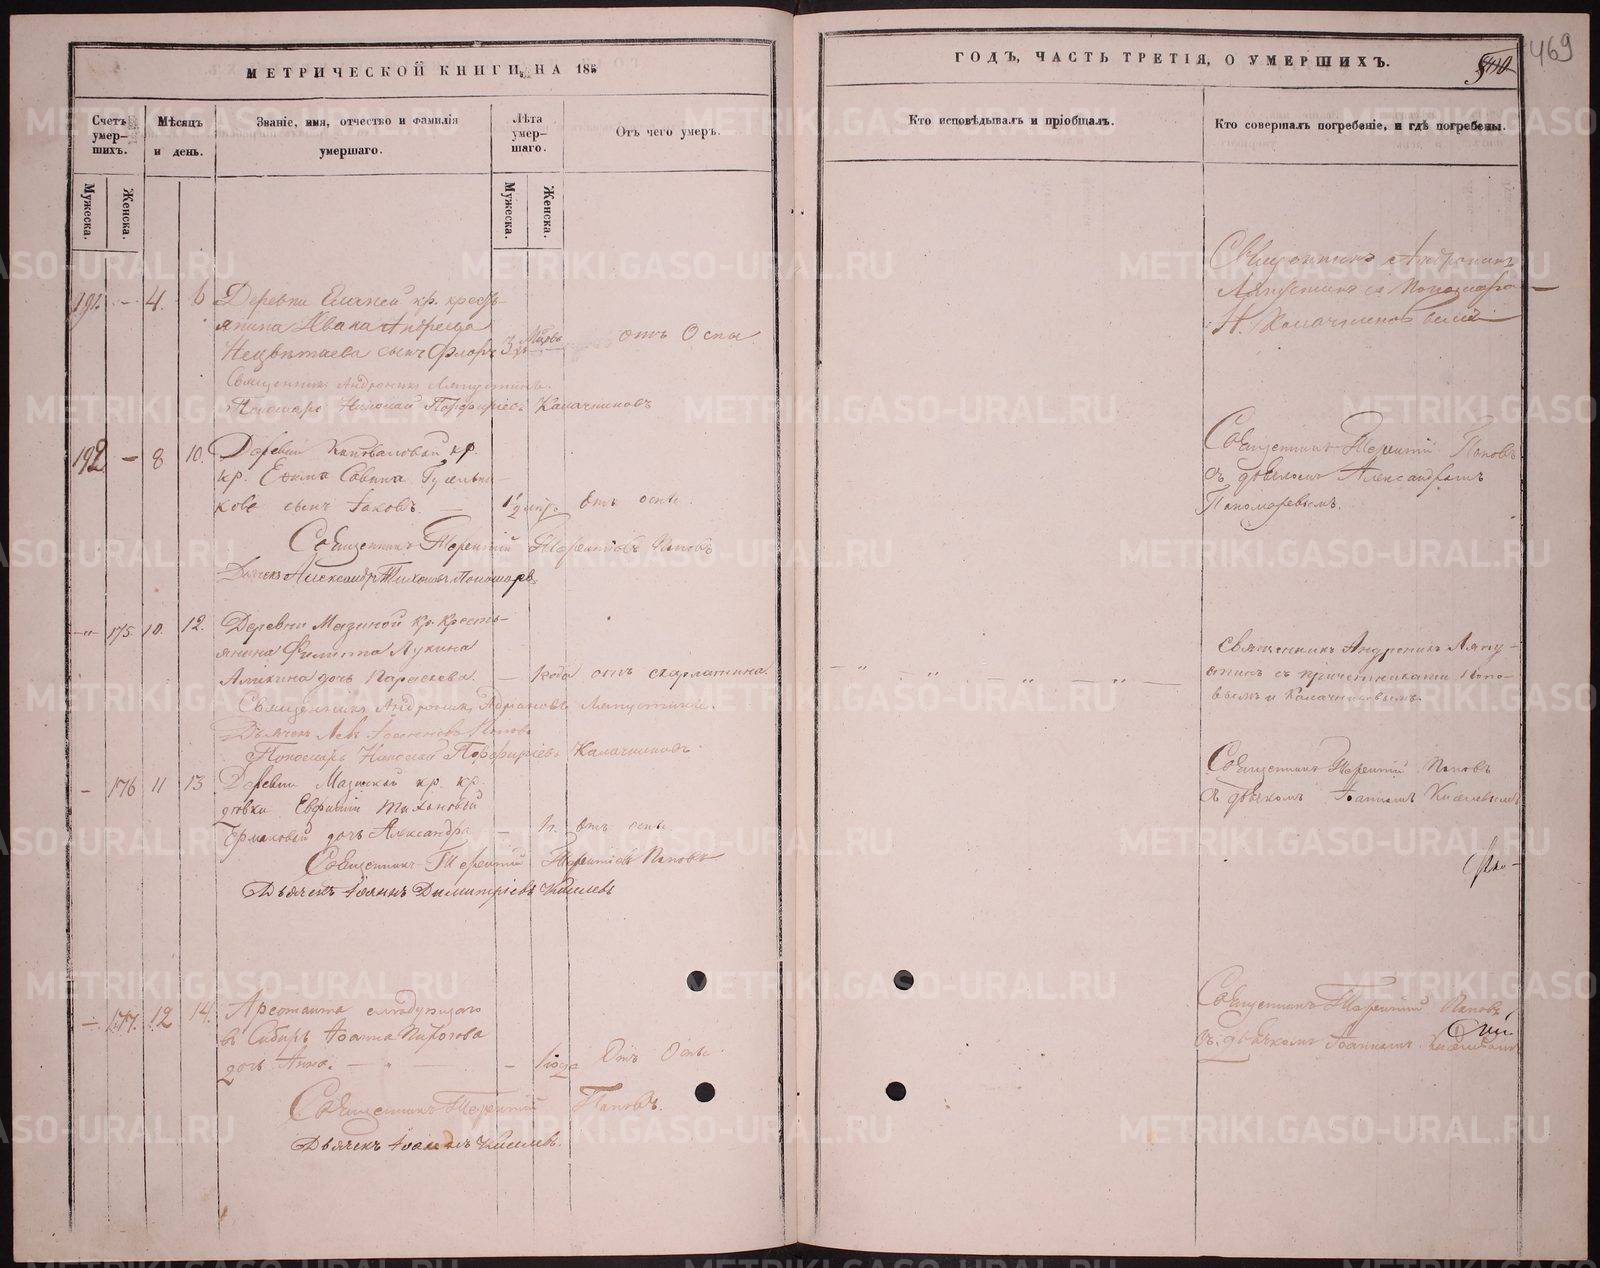 МЕТРИЧЕСКОЙ КНИГИ, НА 185
Счетъ умерших.
Мѣсяцъ и день.
Званіе, имя, отчество и фамилія умершаго.
Лѣта умершаго.
Отъ чего умеръ.
Мужеска.
Женска.
Мужеска.
Женска.
191. — 4. 6 Деревни кр. кресть-
янина Ивака Андреева
Нецвѣтаева сынъ Флоръ 3 отъ Оспы
Священникъ Андроникъ Ляпустинъ.
Пономарь Николай Порфирьевъ Калачниковъ
192 — 8 10. Деревни кр.
кр. Савина
кова сынъ Іаковъ. — 1/2 отъ оспы.
Священникъ Терентій Терентіевъ Поповъ
Дьячекъ Александръ Тихоновъ Пономаревъ
—"— 175. 10. 12. Деревни Мазиной кр. кресть-
янина Филиппа Лукина
дочь Параскева. — 1 года отъ скарлатина.
Священникъ Андроникъ Адріановъ Ляпустинъ.
Дьячекъ Левъ Попов
Пономарь Николай Порфирьевъ Калачниковъ.
— 176 11 13 Деревни Мазиной кр. кр.
дѣвки Тихоновой
Ермаковой дочь Александра — 1 г. отъ оспы
Священникъ Терентій Терентіевъ Поповъ
Дьячекъ Іоаннъ Димитріевъ Киселевъ
— 177. 12 14. Арестанта слѣдующаго
въ Сибирь Пирогова
дочь Анна. — " — — 1 года Отъ Оспы.
Священникъ Терентій Поповъ.
Дьячекъ Іоаннъ Киселевъ.
ГОДЪ, ЧАСТЬ ТРЕТІЯ, О УМЕРШИХЪ.
469
Кто исповѣдывалъ и пріобщалъ.
Кто совершалъ погребеніе, и гдѣ погребены.
Священникъ Андроникъ
Ляпустинъ съ Пономаремъ
Н. Калачниковымъ
Священникъ Терентій Поповъ
съ дьячкомъ Александромъ
Пономаревымъ.
— " — " — " —
Священникъ Андроникъ Ляпу-
стинъ съ причетниками Попо-
вымъ и Калачниковымъ.
Священникъ Терентій Поповъ
съ дьячкомъ Іоанномъ Киселевымъ
Священникъ Терентій Поповъ
съ дьячкомъ Іоанномъ Киселевымъ
METRIKI.GASO-URAL.RU